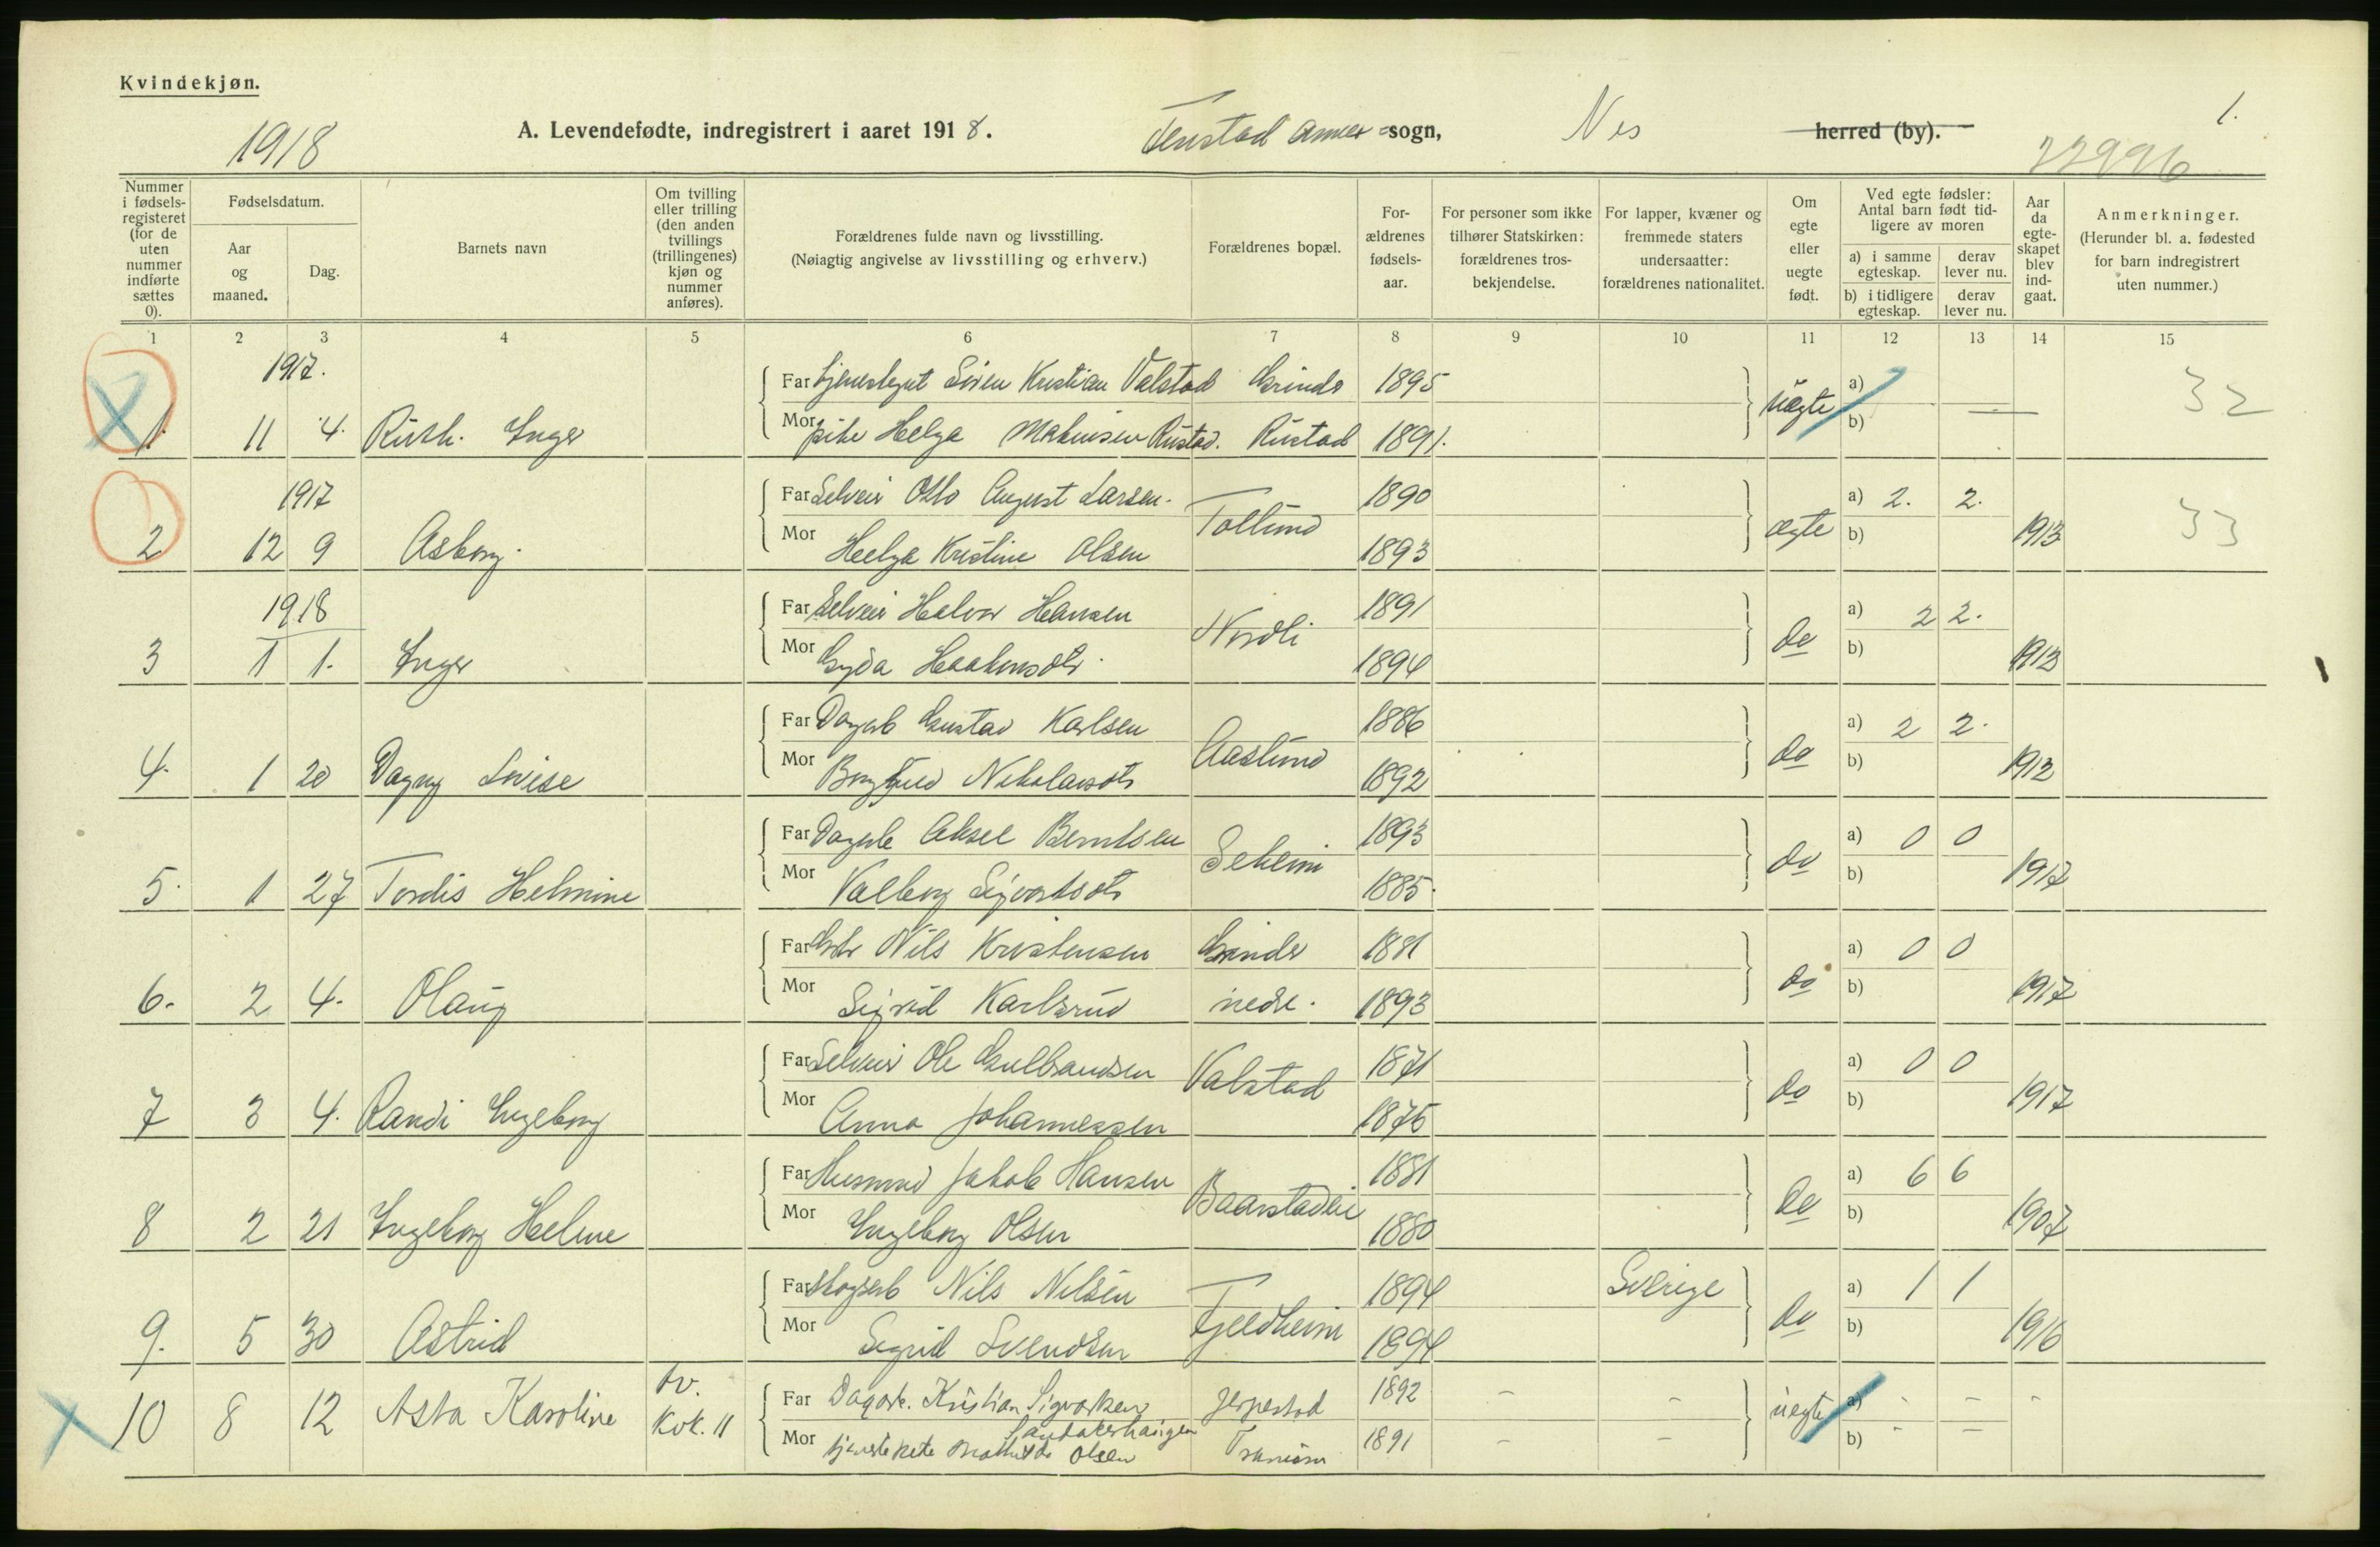 Kvindekjøn.
1918
A. Levendefødte, indregistrert i aaret 1918.
Tenstad annex sogn,
Nes
herred (by).
1.
Nummer i fødsels-registeret (for de uten nummer indførte sættes 0).
Fødselsdatum.
Aar og maaned.
Dag.
Barnets navn
Om tvilling eller trilling (den anden tvillings (trillingenes) kjøn og nummer anføres).
Forældrenes fulde navn og livsstilling.
(Nøiagtig angivelse av livsstilling og erhverv.)
Forældrenes bopæl.
For-ældrenes fødsels-aar.
For personer som ikke tilhører Statskirken: forældrenes tros-bekjendelse.
For lapper, kvæner og fremmede staters undersaatter: forældrenes nationalitet.
Om egte eller uegte født.
Ved egte fødsler: Antal barn født tid-ligere av moren
a) i samme egteskap.
derav lever nu.
b) i tidligere egteskap.
derav lever nu.
Aar da egte-skapet blev ind-gaat.
Anmerkninger.
(Herunder bl. a. fødested for barn indregistrert uten nummer.)
1 2 3 4 5 6 7 8 9 10 11 12 13 14 15
1917.
Far Søren Kristian Valstad 1895 a) 32
1. 11 4. Ruth Inger Mor pike Helga Rustad. Rustad 1891. uegte b) —
1917
Far Selveier Otto August Larsen. 1890 a) 2. 2. 33
2 12 9 Asborg. Mor Helga Kristine Olsen Tollund 1893 ægte b) 1913
1918
Far Selveier Halvor Hansen 1891 a) 2 2.
3 1 1. Inger Mor Gyda Haakensdtr. Nordli 1894 do b) 1913
Far Dagarb Gustav Karlsen 1886 a) 2 2.
4. 1 20 Dagny Lovise Mor Nikolaisdtr Aaslund 1892 do b) 1912
Far Dagarb Aksel Berntsen 1893 a) 0 0
5. 1 27 Tordis Helmine Mor Valborg Sigvartsdtr Solheim 1885. do b) 1917
Far Nils Kristensen Grinder 1881 a) 0 0
6. 2 4. Olaug Mor Sigrid Karlsrud nedre. 1893 do b) 1917
Far Selveier Ole Gulbrandsen 1871 a) 0 0
7 3 4. Randi Ingeborg Mor Anna Johannessen Valstad 1875 do b) 1917
Far Husmand Jakob Hansen 1881 a) 6 6
8 2 21 Ingeborg Helene Mor Ingeborg Olsen Baarstadeie 1880 do b) 1907
Far Skogsarb Nils Nilsen 1894 Sverige a) 1 1
9. 5 30 Astrid Mor Sigrid Svendsen Fjeldheim 1894 do b) 1916
tv.
10 8 12 Asta Karoline Kvk. 11 Far Dagarb. Kristian Sigvartsen Jerpestad 1892 - - uegte a) - - -
Mor Olsen 1891 - - b) - -